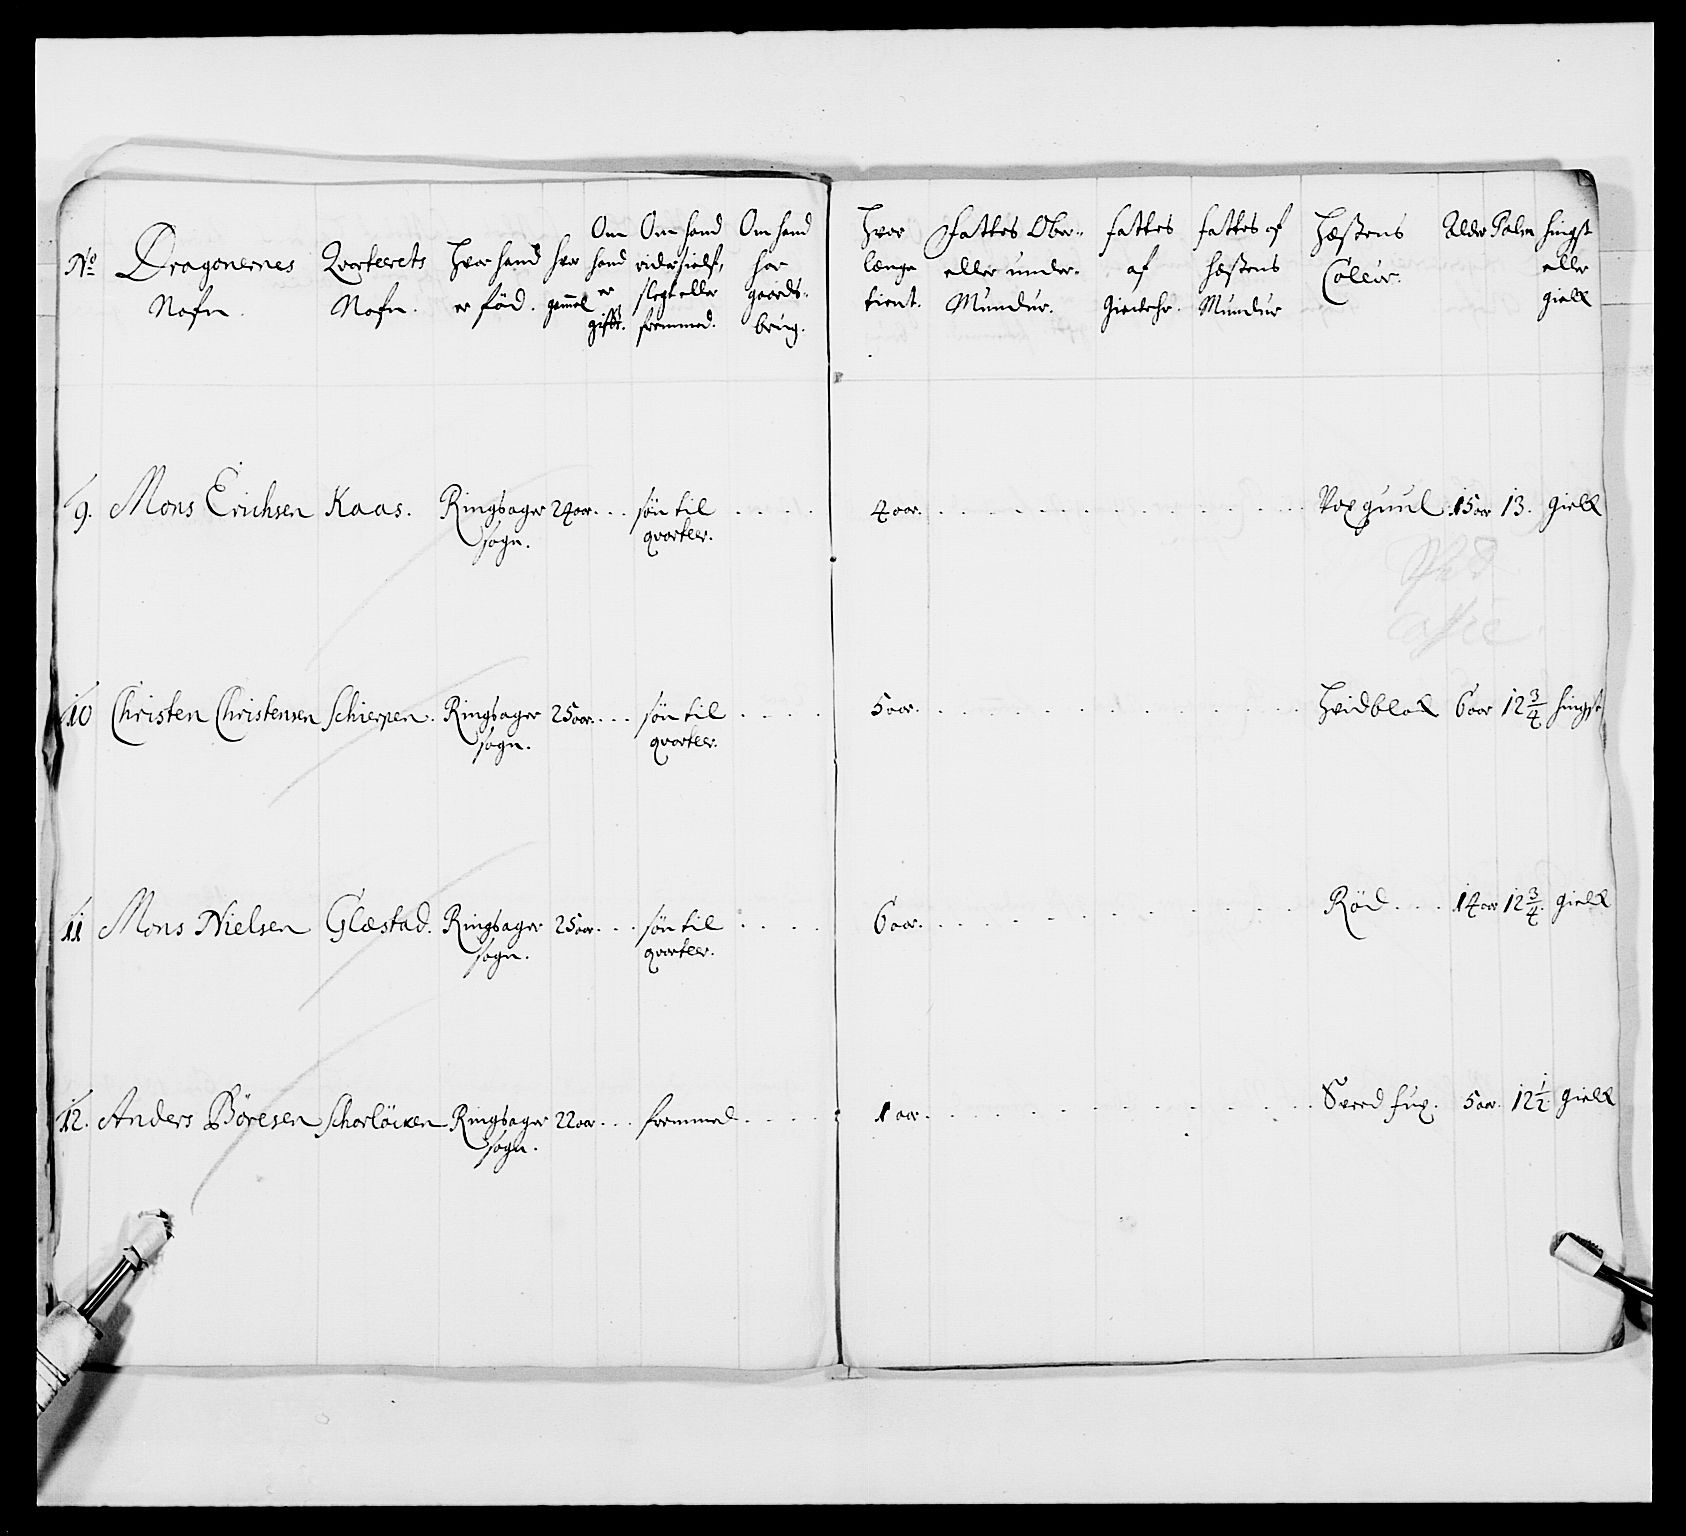 No Dragonernes Nafn. Qvarteerets Nafn. Hvor hand er föd. hvor gammel Om hand er gifft. Om hand rider sielf, slegt eller fremmed. Om hand har gaards-brug. Hvor længe tient. Fattes Ober- eller under-Mundur. Fattes af Giewehr. Fattes af hæstens Mundur Hæstens Coleur. Alder Palm hingst eller gield
9. Mons Erichsen Kaas. Ringsager sogn. 24 aar. . . Sön til qvarteer. . . . . 4 aar. . . . Voxguul 15 aar 13. gield
Cassie
10 Christen Christensen Schierpen. Ringsager sogn. 25 aar. . . Sön til qvarteer. . . . . 5 aar. . . . Hvidblak 6 aar 12 3/4 hingst
11 Mons Nielsen Glæstad. Ringsager sogn. 25 aar. . . Sön til qvarteer. . . . . 6 aar. . . . Röd . . . 14 aar 12 3/4. gield
12. Anders Böresen Scharlöcken Ringsager sogn. 22 aar. . . fremmed. . . . 1 aar. . . . Sverd fux. 5 aar. 12 1/2 gield